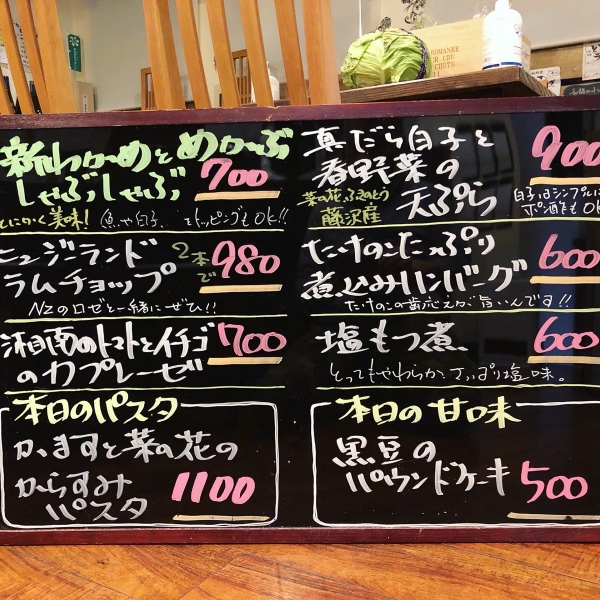 新わかめとめかぶ
しゃぶしゃぶ 700
とにかく美味! (魚や白子、トッピングもOK!!
ニュージーランド
ラムチョップ 2本で 980
NZのロゼと一緒にぜひ!!
湘南のトマトとイチゴ
のカプレーゼ 700
本日のパスタ
かますと菜の花の
からすみ
パスタ 1100
真だら白子と
春野菜の
天ぷら 900
菜の花、ふきのとう
藤沢産
白子はシンプルに
ポン酢もOK
たけのこたっぷり
煮込みハンバーグ 600
たけのこの歯応えが旨いんです!!
塩もつ煮 600
とってもやわらか、さっぱり塩味。
本日の甘味
黒豆の
パウンドケーキ 500
ROMANEE
CRU